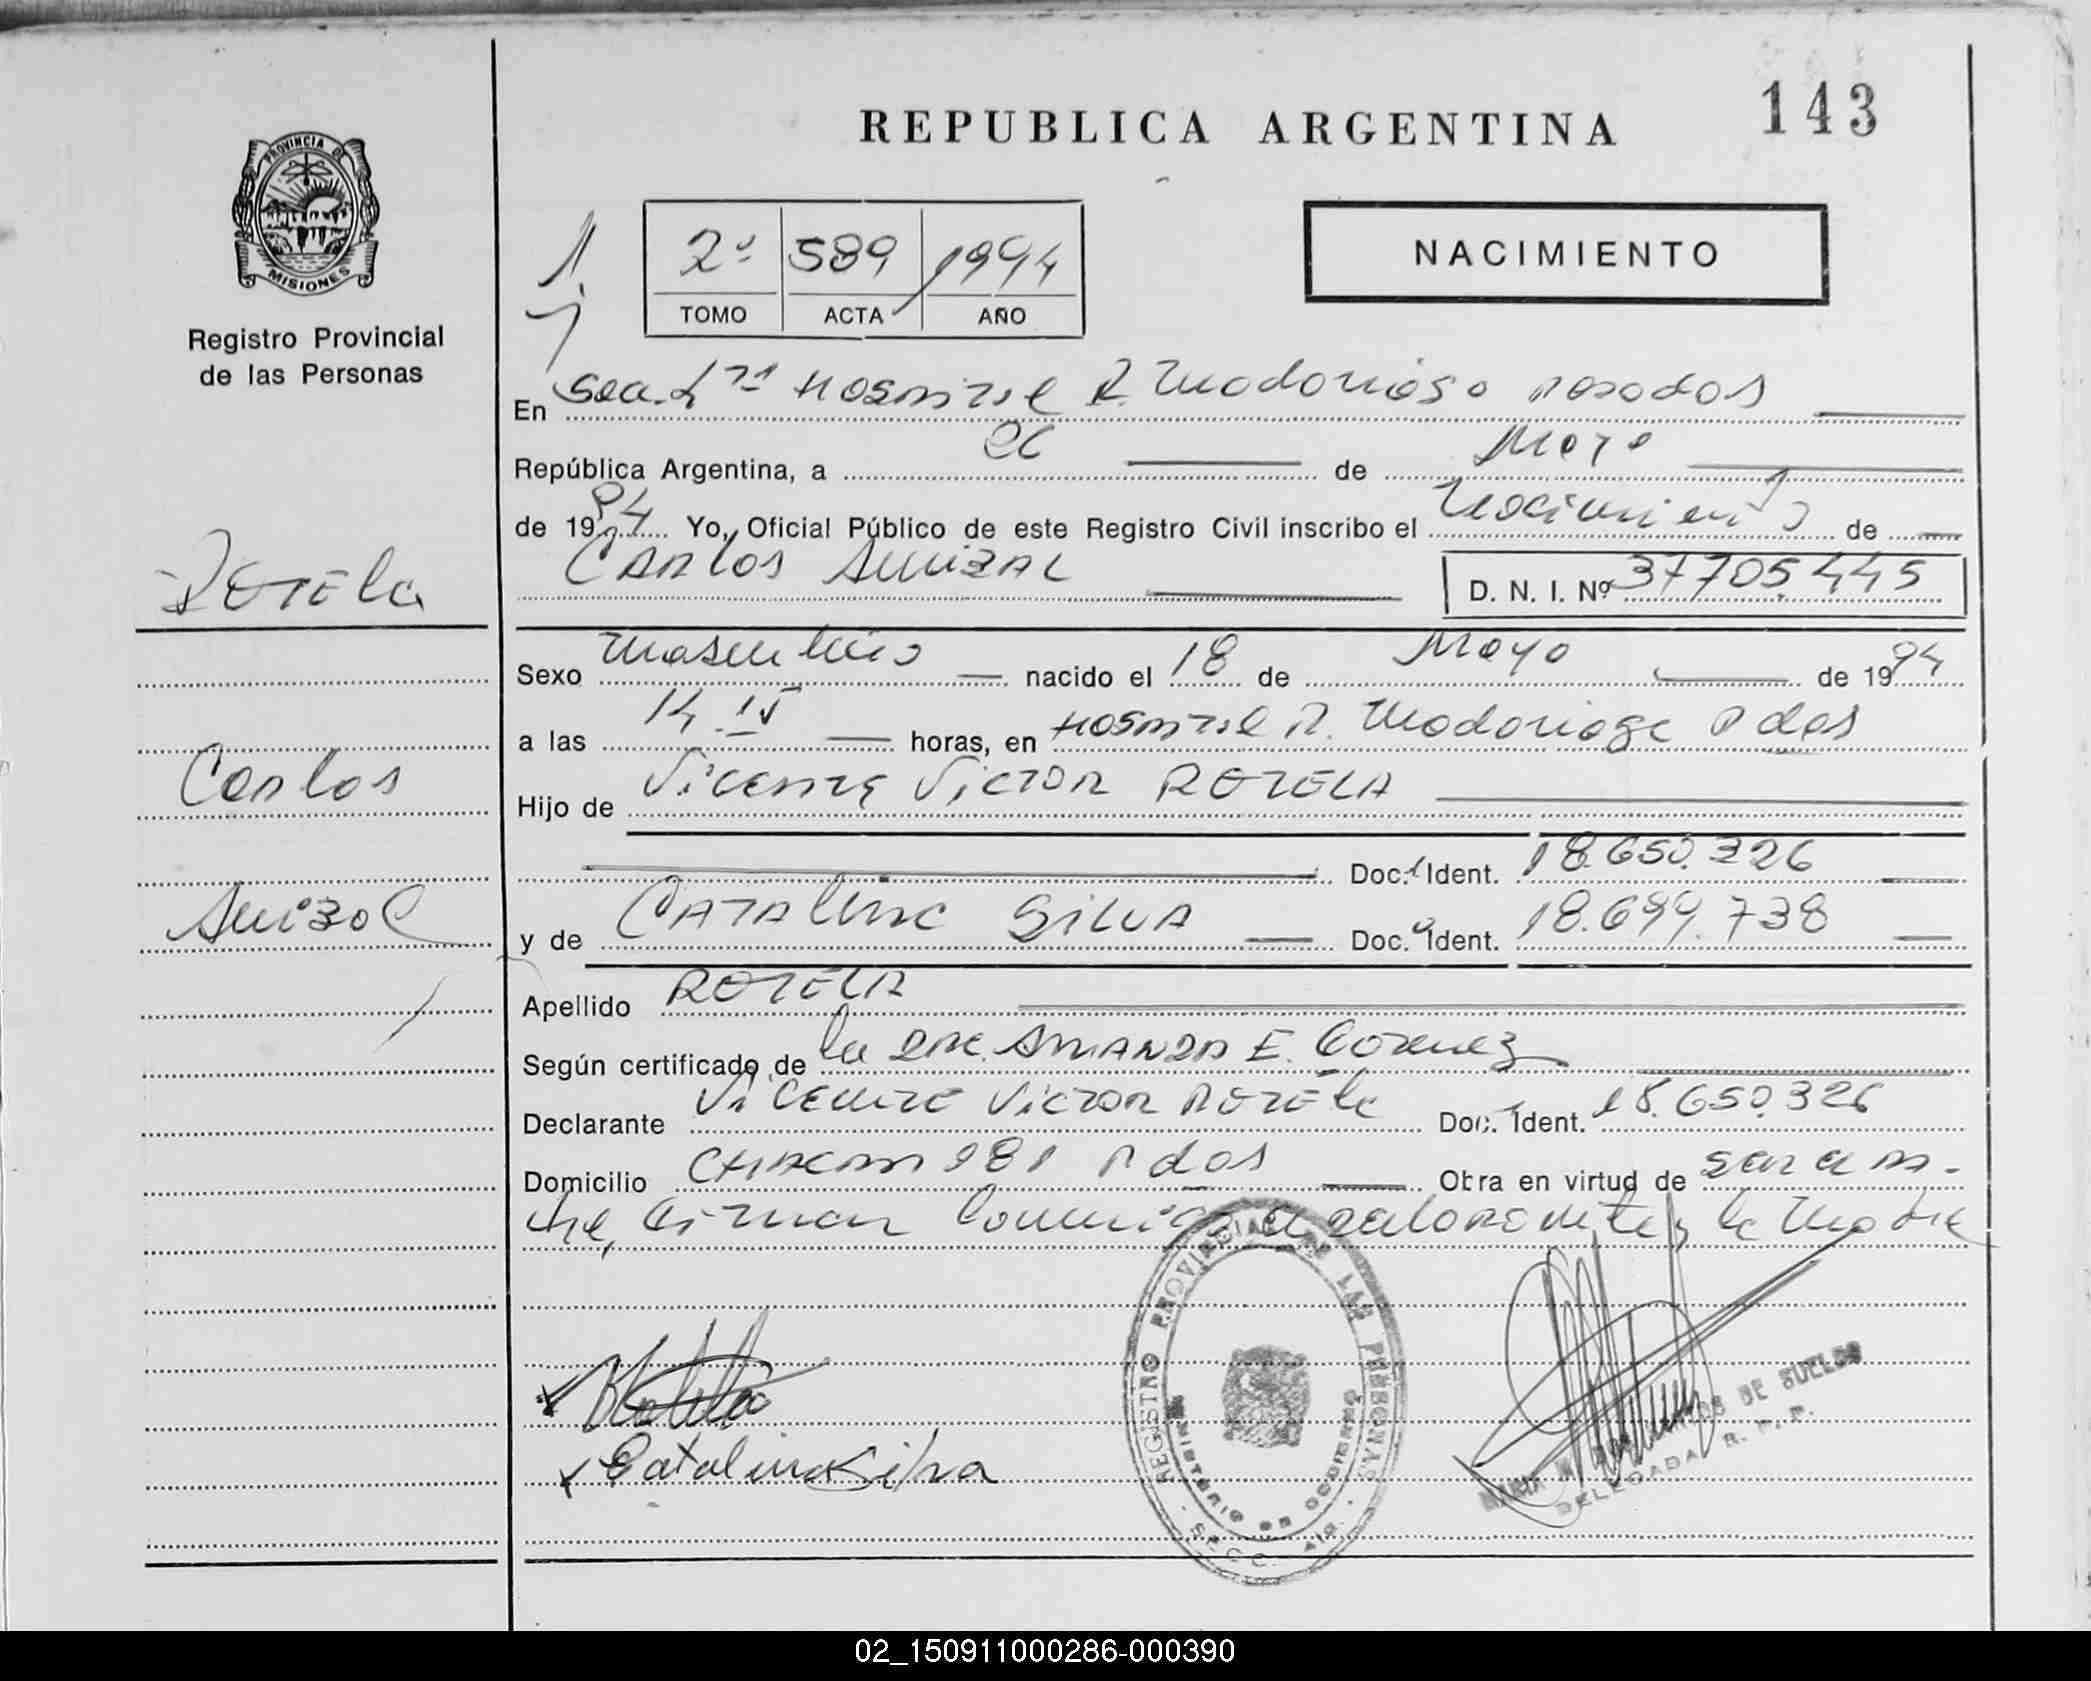 143
REPUBLICA ARGENTINA
PROVINCIA DE
MISIONES
Registro Provincial
de las Personas
NACIMIENTO
2º 589 1994
TOMO ACTA AÑO
En Sec. 1ra Hospital R. Madariaga Posadas
República Argentina, a de Mayo
de 1994 Yo, Oficial Público de este Registro Civil inscribo el Nacimiento de
CARLOS ANIZAL
D. N. I. Nº 37705.445
ROTELA
Carlos
Anizal
Sexo Masculino nacido el 18 de Mayo de 1994
a las 14.15 horas, en Hospital R. Madariaga Pdas
Hijo de Vicente Victor ROTELA
Doc. Ident. 18.650.326
y de CATALINA SILVA Doc. Ident. 18.699.738
Apellido ROTELA
Según certificado de la Dra. AMANDA E. Gomez
Declarante Vicente Victor Rotela Doc. Ident. 18.650.326
Domicilio Pdas Obra en virtud de ser el pa-
dre, firman conmigo el declarante y la Madre
Catalina Silva
REGISTRO PROVINCIAL DE LAS PERSONAS
MINISTERIO DE GOBIERNO
DE SUELDO
DELEGADA R. P. P.
02_150911000286-000390